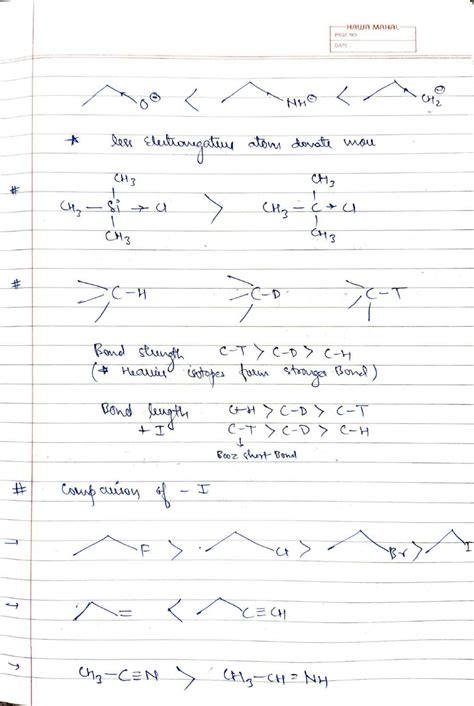 HAWA MAHAL
PAGE NO.
DATE:
O⊖ < NH⊖ < CH₂⊖
* less Electronegative atoms donate more
# CH₃ CH₃
CH₃—Si→Cl > CH₃—C→Cl
CH₃ CH₃
# C—H C—D C—T
Bond strength C-T > C-D > C-H
(* Heavier isotopes form stronger Bond)
Bond length C-H > C-D > C-T
+ I C-T > C-D > C-H
↓
Booz short Bond
# Comparison of - I
→ F > Cl > Br > I
→ = < C≡CH
→ CH₃-C≡N > CH₃-CH=NH